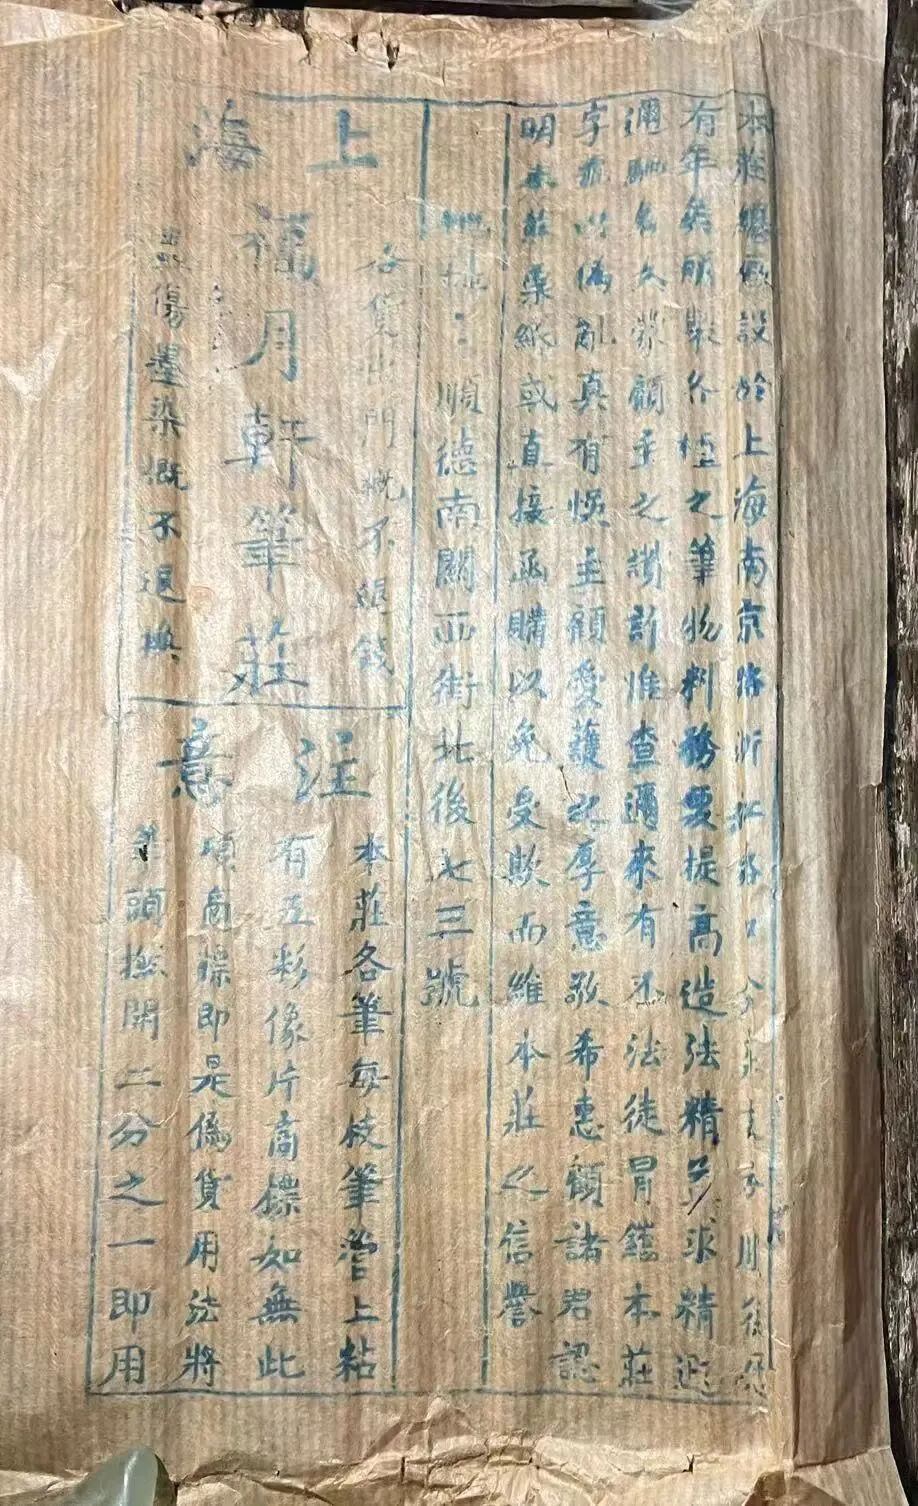 本莊總廠設於上海南京路浙江路口分莊
有年矣所製各種之筆物料務要提高造法精益求精遐
邇馳名久蒙顧主之讚許惟查邇來有不法徒冒鑄本莊
字號以偽亂真有悞主顧愛護之厚意敬希惠顧諸君認
明本莊票紙或直接函購以免受欺而維本莊之信譽
地址：順德南關西街北後七三號
上海
各貨出門概不退錢
月軒筆莊
傷墨染概不退換
注意
本莊各筆每枝筆管上粘
有五彩像片商標如無此
項商標即是偽貨用法將
筆頭撚開二分之一即用